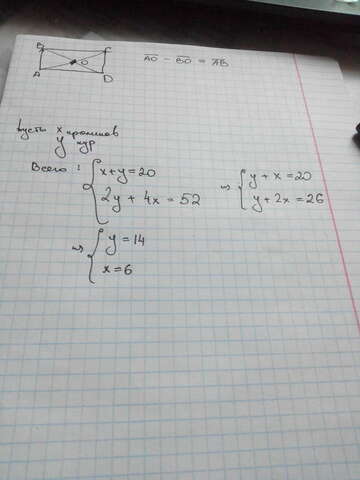 B C
O
A D
AO - BO = AB
Пусть x кроликов
y кур
Всего: { x+y=20
2y + 4x = 52
⇒ { y + x = 20
y + 2x = 26
⇒ { y = 14
x = 6